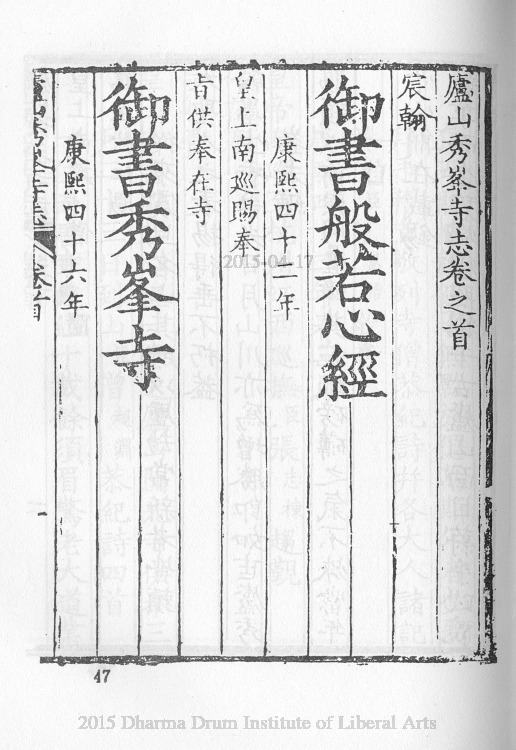 廬山秀峯寺志卷之首
宸翰
御書般若心經
康熙四十二年
皇上南巡賜奉
旨供奉在寺
御書秀峯寺
康熙四十六年
廬山秀峯寺志
卷首
一
47
2015-04-17
2015 Dharma Drum Institute of Liberal Arts